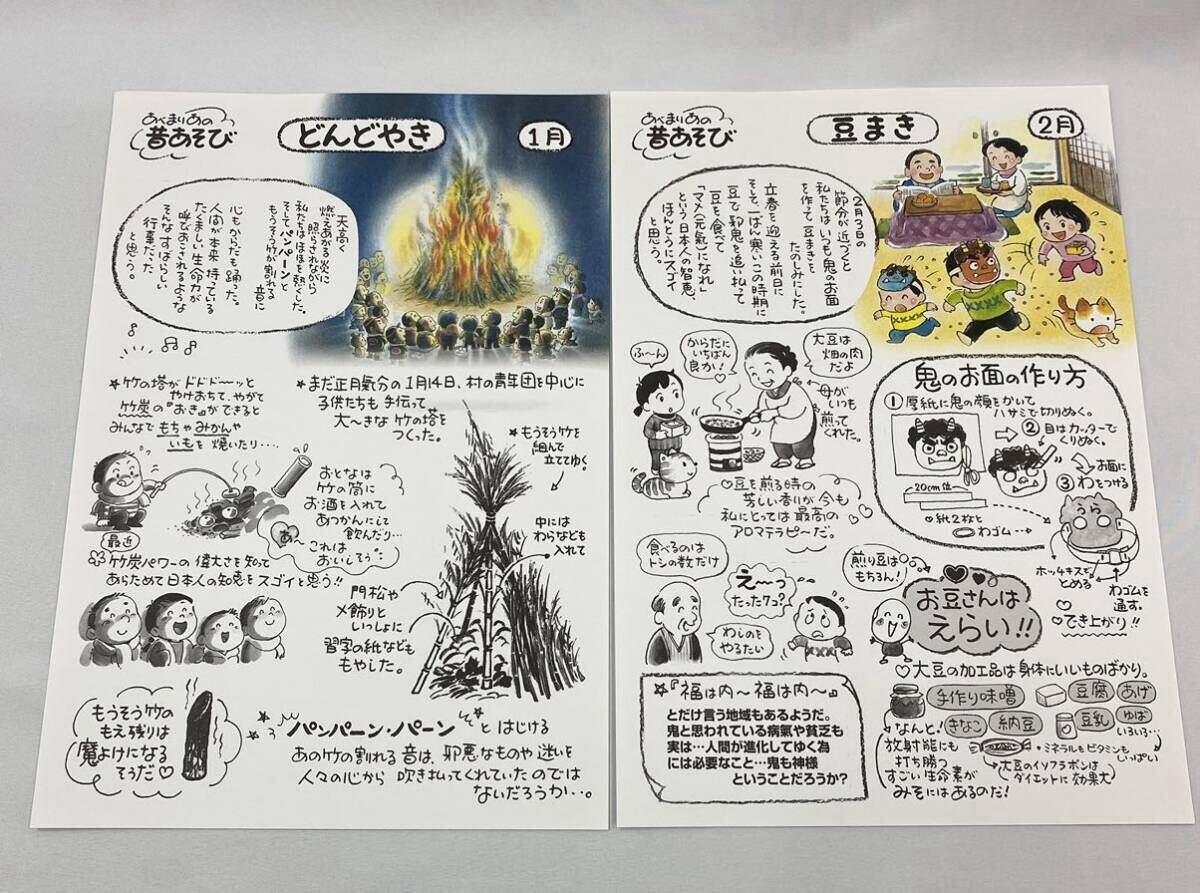 あべまりあの
昔あそび
どんどやき
1月
天高く
燃えあがる炎に
照らされながら
私たちはほほを熱くした。
そしてパンパーンと
もうそう竹が割れる
音に
心もからだも踊った。
人間が本来持っている
たくましい生命力が
呼びおこされるような
そんなすばらしい
行事だった
と思う。
★まだ正月気分の1月14日、村の青年団を中心に
子供たちも手伝って
大〜きな竹の塔を
つくった。
★竹の塔がドドド〜ッと
やけおちて、やがて
竹炭の"おき"ができると
みんなでもちやみかんや
いもを焼いたり・・・・
★もうそう竹を
組んで
立ててゆく。
おとなは
竹の筒に
お酒を入れて
あつかんにして
飲んだり…
あ〜
これは
おいしそう
中には
わらなども
入れて
最近
竹炭パワーの偉大さを知って
あらためて日本人の知恵をスゴイと思う!!
門松や
〆飾りと
いっしょに
習字の紙なども
もやした。
もうそう竹の
もえ残りは
魔よけになる
そうだ♡
パンパーン・パーン
とはじける
あの竹の割れる音は、邪悪なものや迷いを
人々の心から吹き払ってくれていたのでは
ないだろうか…。
あべまりあの
昔あそび
豆まき
2月
2月3日の
節分が近づくと
私たちはいつも鬼のお面
を作って、豆まきを
たのしみにした。
立春を迎える前日に
そして、一ばん寒いこの時期に
豆で邪鬼を追い払って
豆を食べて
「マメ(元気)になれ」
という日本人の智恵、
ほんとうにスゴイ
と思う。
ふ〜ん
からだに
いちばん
良か!
大豆は
畑の肉
だよ
母が
いつも
煎って
くれた。
♡豆を煎る時の
芳しい香りが今も
私にとっては最高の
アロマテラピーだ。
食べるのは
トシの数だけ
え〜っ
たった7コ?
わしのを
やるたい
☆『福は内〜福は内〜』
とだけ言う地域もあるようだ。
鬼と思われている病氣や貧乏も
実は…人間が進化してゆく為
には必要なこと…鬼も神様
ということだろうか?
鬼のお面の作り方
① 厚紙に鬼の顔をかいて
ハサミで切りぬく。
② 目はカッターで
くりぬく。
お面に
③ わをつける
20cm位
紙2枚と
わゴム
うら
ホッチキスで
とめる
わゴムを
通す。
♡でき上がり!!
煎り豆は
もちろん!
お豆さんは
えらい!!
♡大豆の加工品は身体にいいものばかり。
手作り味噌
豆腐
あげ
きなこ
納豆
豆乳
ゆば
いろいろ…
なんと!
放射能にも
打ち勝つ
すごい生命素が
みそにはあるのだ!
・ミネラルもビタミンも
いっぱい
大豆のイソフラボンは
ダイエットに効果大